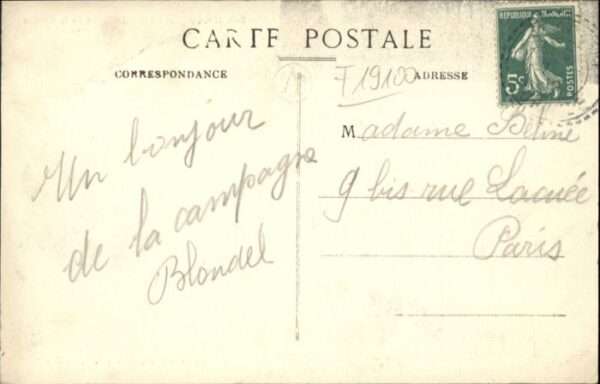 CARTE POSTALE
CORRESPONDANCE
ADRESSE
T19100
REPUBLIQUE FRANCAISE
5c
POSTES
Un bonjour
de la campagne
Blondel
Madame
9 bis rue Lacuée
Paris